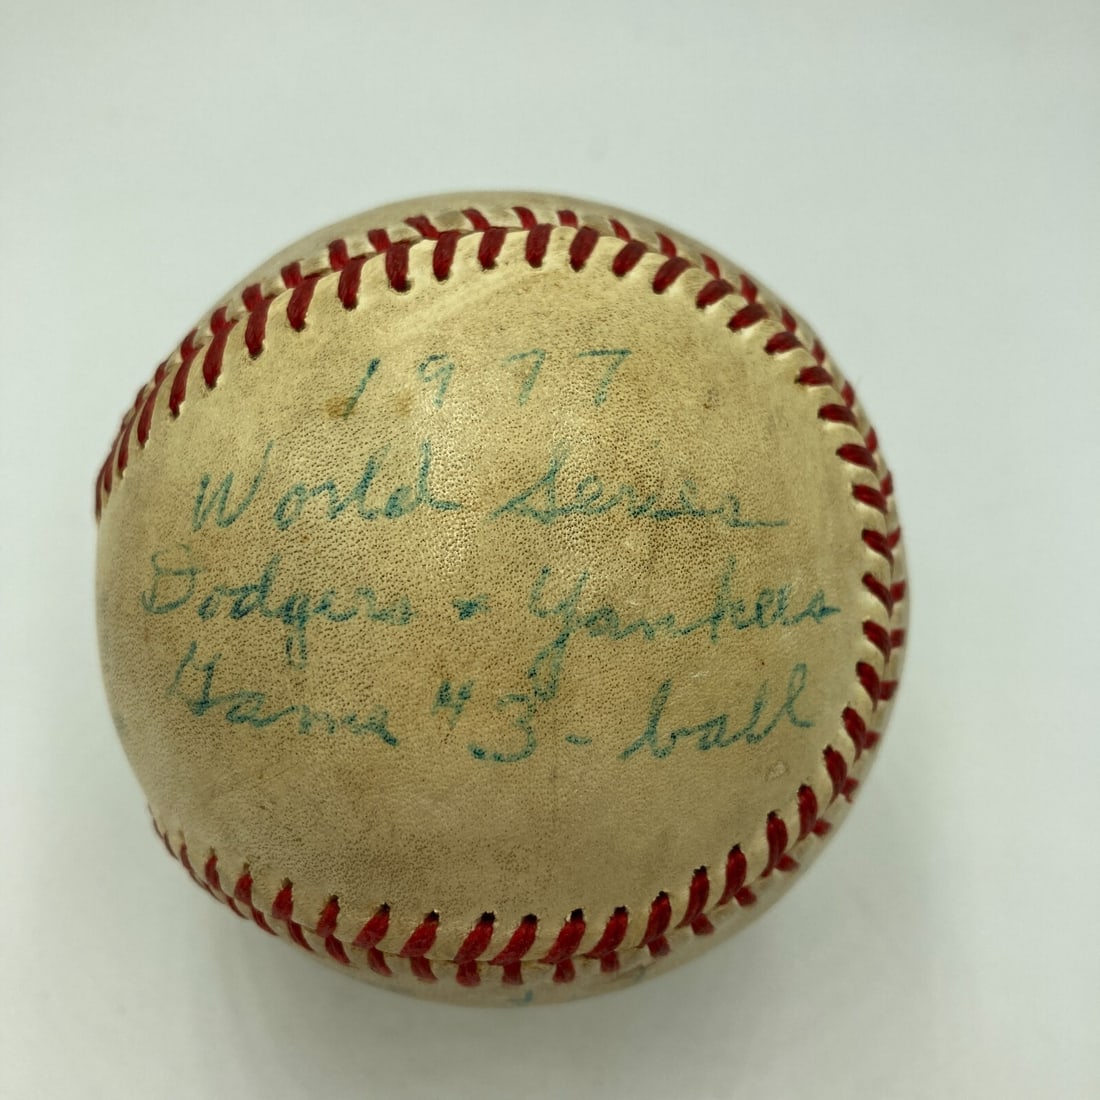 1977
World Series
Dodgers + Yankees
Game "3" - ball